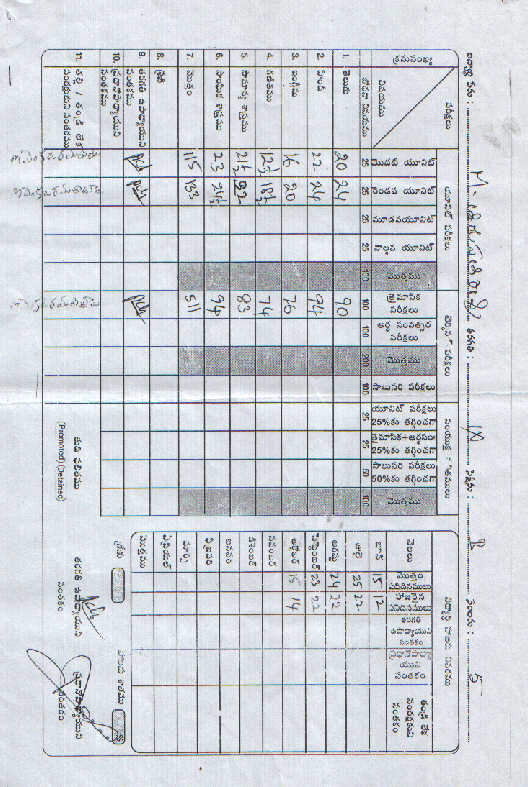 విద్యార్థి పేరు : తరగతి : IX సెక్షను : B నెంబరు : 5
క్రమసంఖ్య
పరీక్షలు
విషయము
యూనిట్ పరీక్షలు
25 మొదటి యూనిట్
25 రెండవ యూనిట్
25 మూడవ యూనిట్
25 నాల్గవ యూనిట్
100 మొత్తము
టెర్మినల్ పరీక్షలు
100 త్రైమాసిక పరీక్షలు
100 అర్ధ సంవత్సర పరీక్షలు
200 మొత్తము
100 సాంవత్సరిక పరీక్షలు
25 యూనిట్ పరీక్షలు 25%కు తగ్గించగా
25%కు తగ్గించగా
50%కు తగ్గించగా
100 మొత్తము
1. తెలుగు 20 24 90
2. హిందీ 22 24 94
3. ఇంగ్లీషు 16 20 76
4. గణితము 74
5. సామాన్య శాస్త్రము 83
6. సాంఘిక శాస్త్రము 23 94
7. మొత్తం 115 133 511
8. గ్రేడ్
9. తరగతి ఉపాధ్యాయుని సంతకము
10. ప్రధానోపాధ్యాయుని సంతకము
11. తల్లి / తండ్రి లేక సంరక్షకుని సంతకము
తుది ఫలితము
(Promoted) (Detained)
విద్యార్థి హాజరు వివరము
నెలలు
మొత్తం పనిదినములు
హాజరైన పనిదినములు
తరగతి ఉపాధ్యాయుని సంతకం
ప్రధానోపాధ్యాయుని సంతకం
తండ్రి లేక సంరక్షకుని సంతకం
జూన్ 15 12
జూలై 25 22
ఆగష్టు 24 22
సెప్టెంబర్ 23 22
అక్టోబర్ 15 14
నవంబర్
డిసెంబర్
జనవరి
ఫిబ్రవరి
మార్చి
ఏప్రియల్
మొత్తము
గ్రేడు
హాజరు శాతము
తరగతి ఉపాధ్యాయుని సంతకం
ప్రధానోపాధ్యాయుని సంతకం